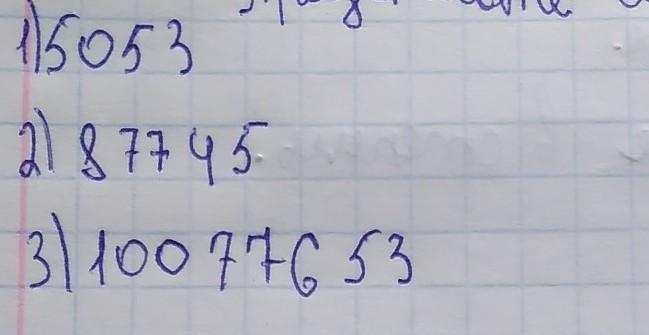 1) 5053
2) 87745
3) 10077653